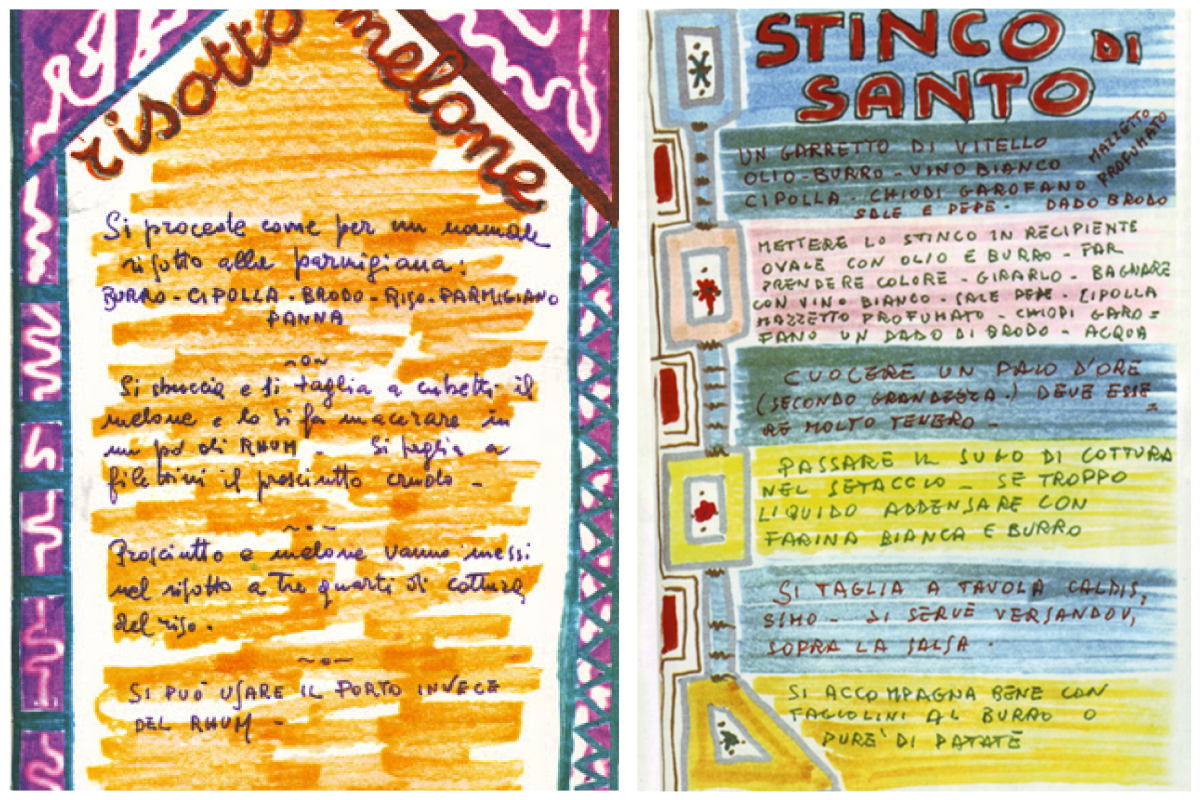 risotto melone
Si procede come per un normale
risotto alla parmigiana:
BURRO - CIPOLLA - BRODO - RISO - PARMIGIANO
PANNA
Si sbuccia e si taglia a cubetti il
melone e lo si fa macerare in
un po' di RHUM - Si taglia a
filettini il prosciutto crudo -
Prosciutto e melone vanno messi
nel risotto a tre quarti di cottura
del riso.
SI PUO' USARE IL PORTO INVECE
DEL RHUM -
STINCO DI
SANTO
UN GARRETTO DI VITELLO
OLIO - BURRO - VINO BIANCO
CIPOLLA - CHIODI GAROFANO
SALE E PEPE - DADO BRODO
MAZZETTO
PROFUMATO
METTERE LO STINCO IN RECIPIENTE
OVALE CON OLIO E BURRO - FAR
PRENDERE COLORE - GIRARLO - BAGNARE
CON VINO BIANCO - SALE PEPE - CIPOLLA
MAZZETTO PROFUMATO - CHIODI GARO=
FANO UN DADO DI BRODO - ACQUA
CUOCERE UN PAIO D'ORE
(SECONDO GRANDEZZA.) DEVE ESSE=
RE MOLTO TENERO -
PASSARE IL SUGO DI COTTURA
NEL SETACCIO - SE TROPPO
LIQUIDO ADDENSARE CON
FARINA BIANCA E BURRO
SI TAGLIA A TAVOLA CALDIS,
SIMO - SI SERVE VERSANDOV,
SOPRA LA SALSA.
SI ACCOMPAGNA BENE CON
FAGIOLINI AL BURRO O
PURE' DI PATATE